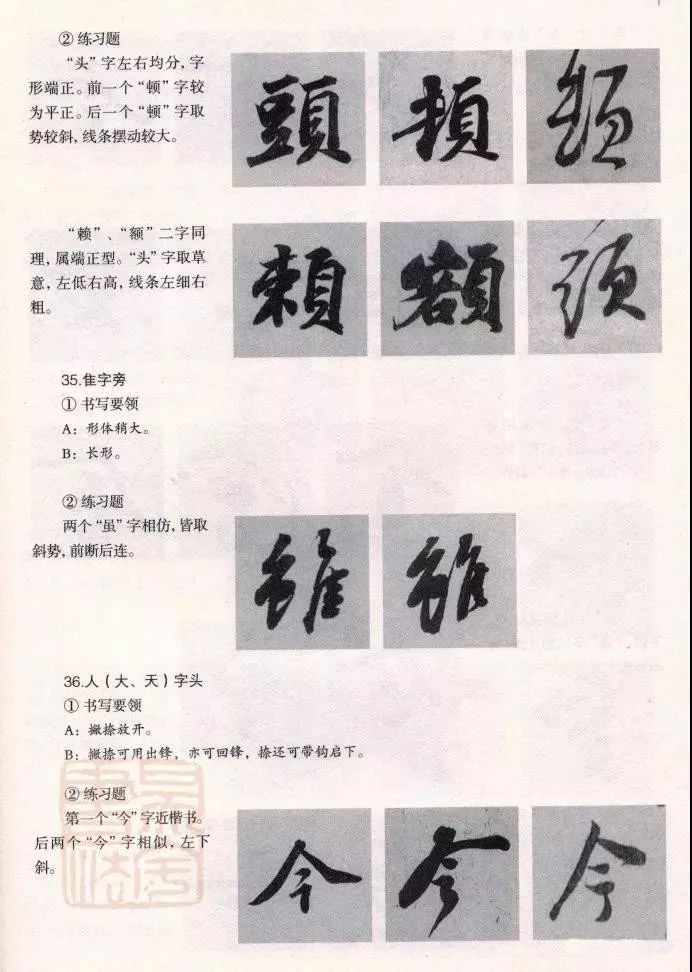 ② 练习题
“头”字左右均分,字
形端正。前一个“顿”字较
为平正。后一个“顿”字取
势较斜,线条摆动较大。
頭 頓 頓
“赖”、“额”二字同
理,属端正型。“头”字取草
意,左低右高,线条左细右
粗。
頼 額 頭
35.隹字旁
① 书写要领
A:形体稍大。
B:长形。
② 练习题
两个“虽”字相仿,皆取
斜势,前断后连。
雖 雖
36.人(大、天)字头
① 书写要领
A:撇捺放开。
B:撇捺可用出锋,亦可回锋,捺还可带钩启下。
② 练习题
第一个“今”字近楷书。
后两个“今”字相似,左下
斜。
今 今 今